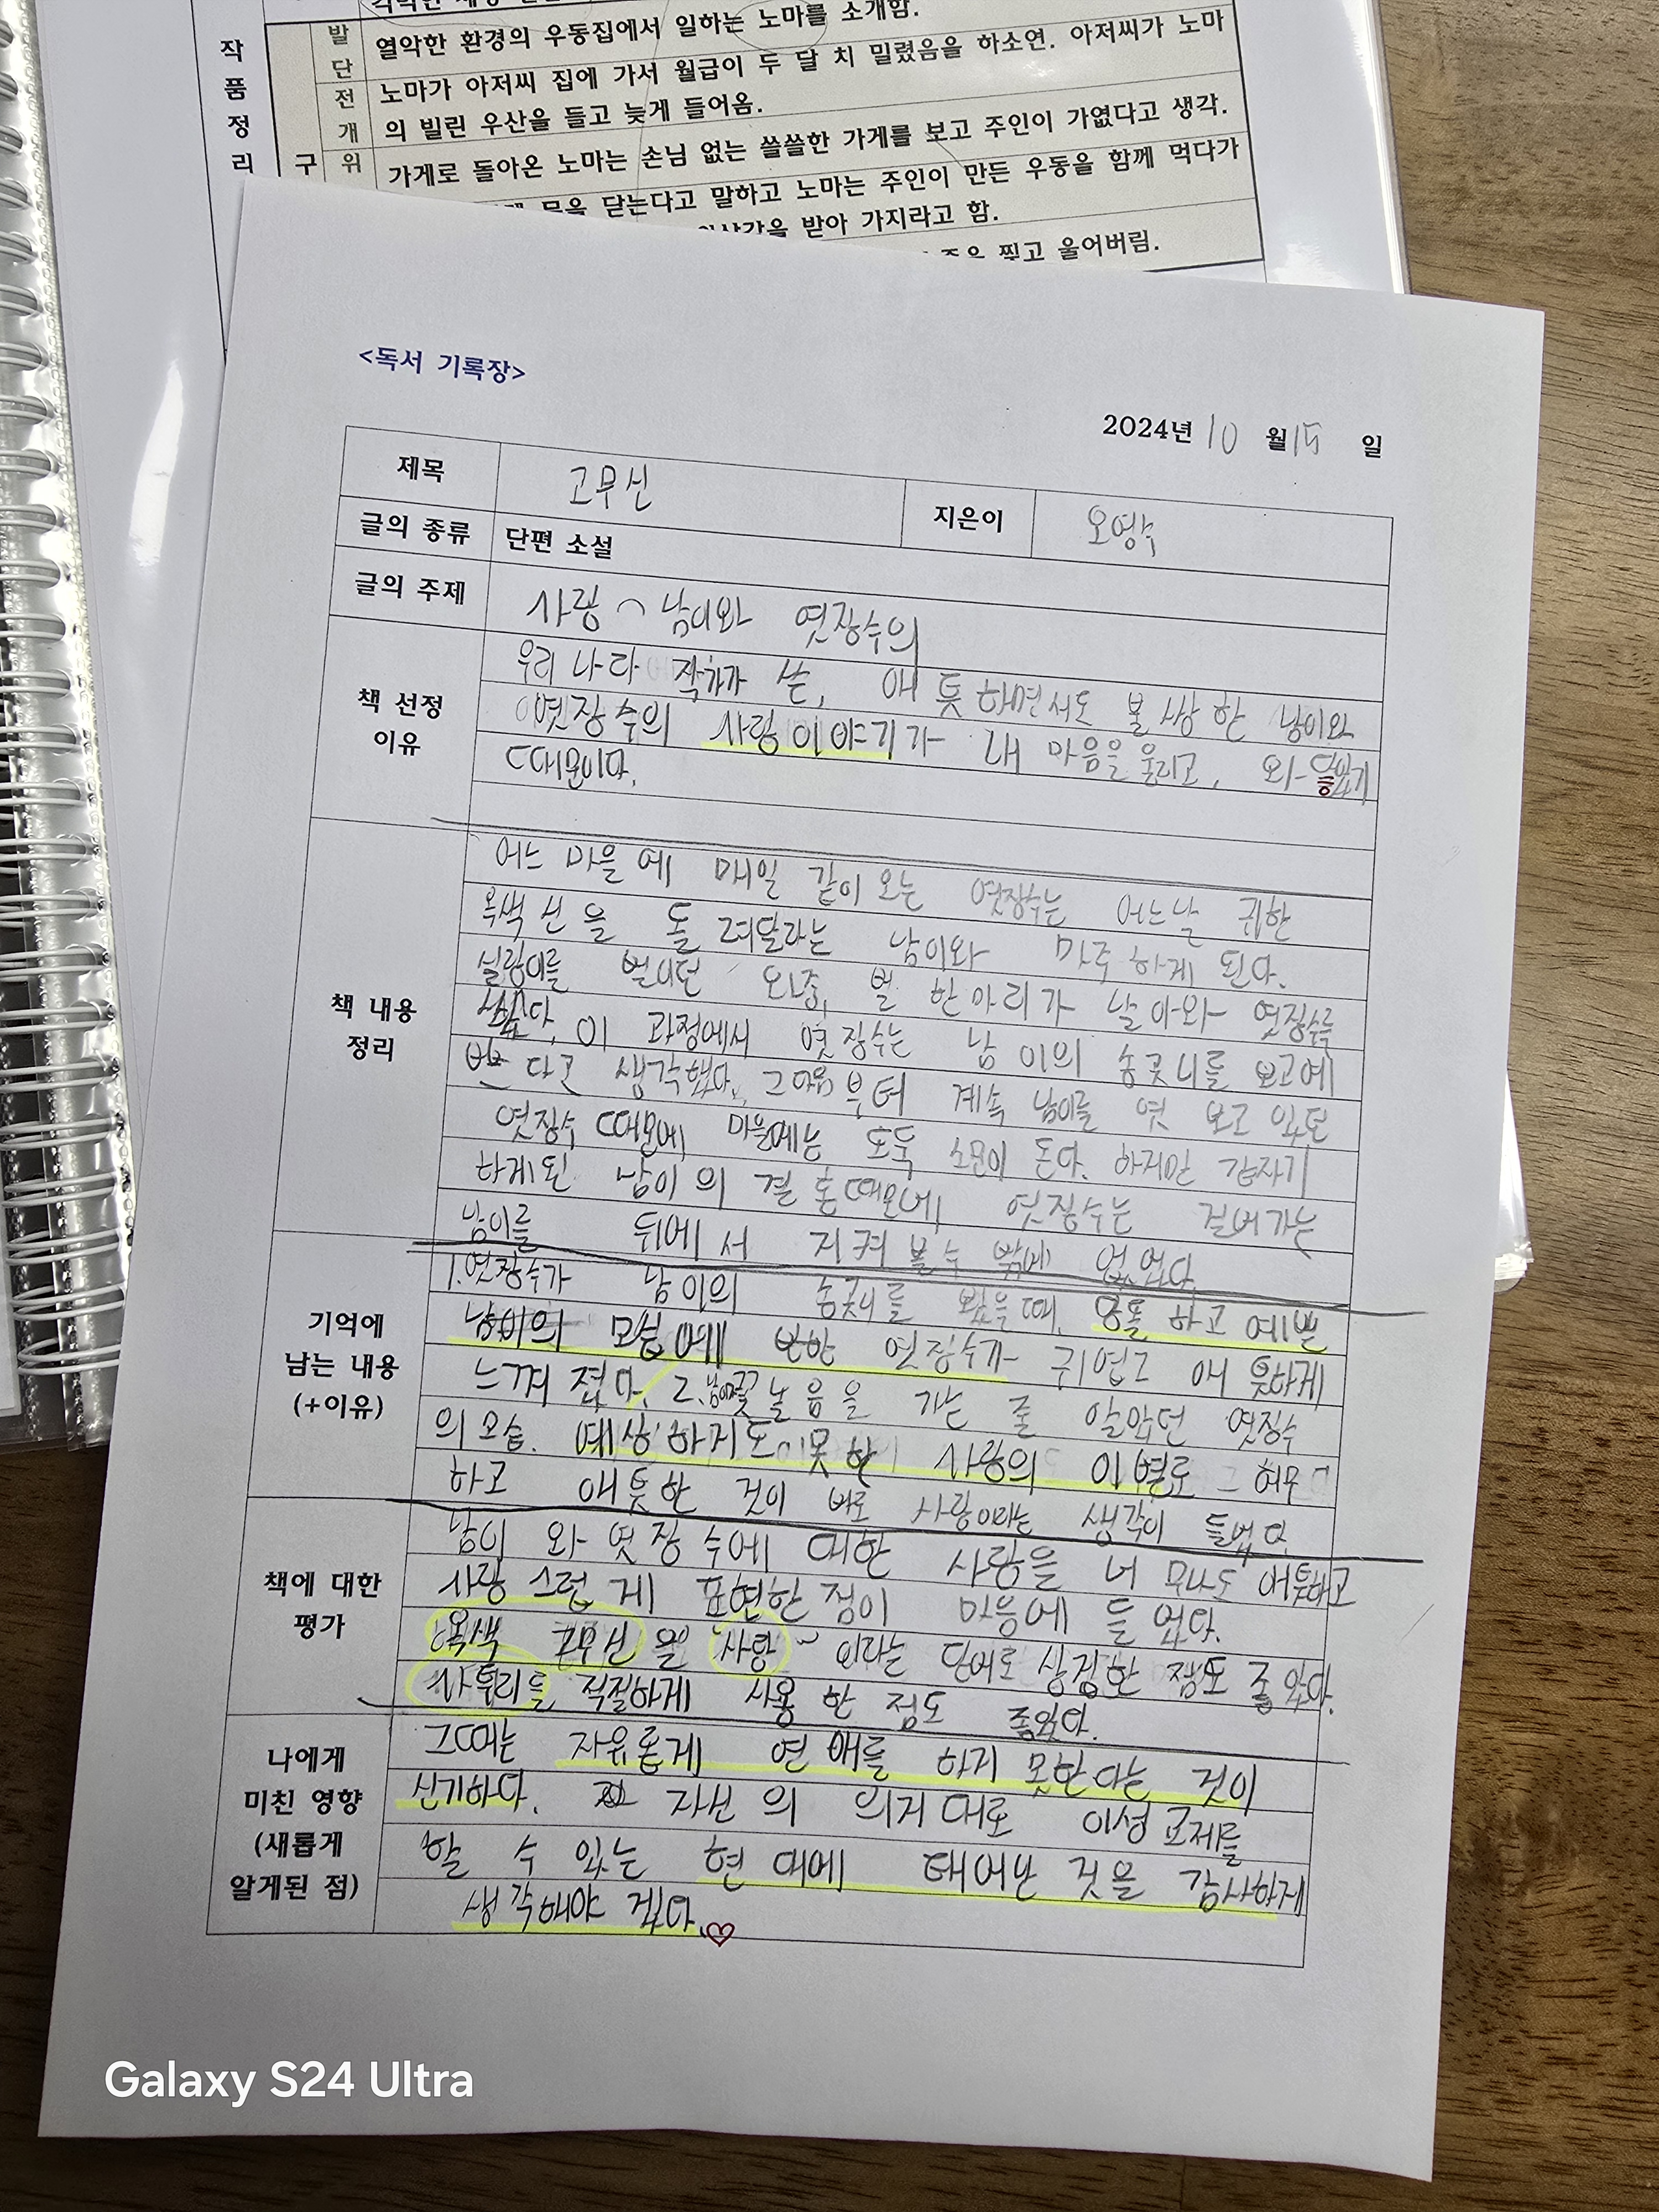 작
품
정
리
구
발
단
열악한 환경의 우동집에서 일하는 노마를 소개함.
전
개
노마가 아저씨 집에 가서 월급이 두 달 치 밀렸음을 하소연. 아저씨가 노마
의 빌린 우산을 들고 늦게 들어옴.
위
가게로 돌아온 노마는 손님 없는 쓸쓸한 가게를 보고 주인이 가엾다고 생각.
문을 닫는다고 말하고 노마는 주인이 만든 우동을 함께 먹다가
받아 가지라고 함.
찢고 울어버림.
<독서 기록장>
2024년 10 월 15 일
제목 고무신 지은이 오영수
글의 종류 단편 소설
글의 주제 사랑 남이와 엿장수의
책 선정
이유
우리 나라 작가가 쓴, 애틋하면서도 불쌍한 남이와
엿장수의 사랑이야기가 내 마음을 울리고, 와
때문이다.
책 내용
정리
어느 마을에 매일 같이 오는 엿장수는 어느날 귀한
옥색 신을 돌려달라는 남이와 마주하게 된다.
실랑이를 벌이던 와중, 벌 한마리가 날아와 엿장수를
쐈다, 이 과정에서 엿장수는 남이의 송곳니를 보고 예
쁘다고 생각했다. 그 다음부터 계속 남이를 엿보고 있던
엿장수 때문에 마을에는 도둑 소문이 돈다. 하지만 갑자기
하게된 남이의 결혼 때문에, 엿장수는 걸어가는
남이를 뒤에서 지켜볼 수 밖에 없었다.
기억에
남는 내용
(+이유)
1. 엿장수가 남이의 송곳니를 봤을 때, 당돌하고 예쁜
남이의 모습에 반한 엿장수가 귀엽고 애틋하게
느껴졌다. 2. 남이가 꽃놀음을 가는 줄 알았던 엿장수
의 모습. 예상하지도 못한 사랑의 이별로 그 허무
하고 애틋한 것이 바로 사랑이라는 생각이 들었다.
책에 대한
평가
남이와 엿장수에 대한 사랑을 너무나도 애틋하고
사랑스럽게 표현한 점이 마음에 들었다.
옥색 고무신을 "사랑" 이라는 단어로 상징한 점도 좋았다.
사투리를 적절하게 사용한 점도 좋았다.
나에게
미친 영향
(새롭게
알게된 점)
그때는 자유롭게 연애를 하지 못한다는 것이
신기하다. 자신의 의지대로 이성교제를
할 수 있는 현대에 태어난 것을 감사하게
생각해야 겠다.
Galaxy S24 Ultra